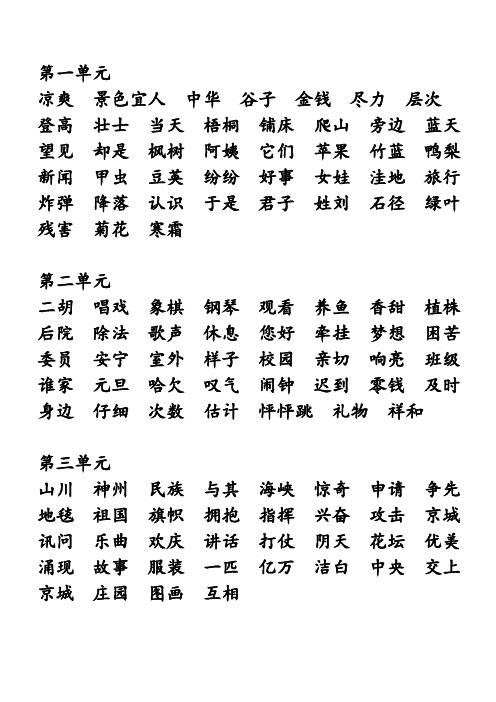 第一单元
凉爽 景色宜人 中华 谷子 金钱 尽力 层次
登高 壮士 当天 梧桐 铺床 爬山 旁边 蓝天
望见 却是 枫树 阿姨 它们 苹果 竹蓝 鸭梨
新闻 甲虫 豆荚 纷纷 好事 女娃 洼地 旅行
炸弹 降落 认识 于是 君子 姓刘 石径 绿叶
残害 菊花 寒霜
第二单元
二胡 唱戏 象棋 钢琴 观看 养鱼 香甜 植株
后院 除法 歌声 休息 您好 牵挂 梦想 困苦
委员 安宁 室外 样子 校园 亲切 响亮 班级
谁家 元旦 哈欠 叹气 闹钟 迟到 零钱 及时
身边 仔细 次数 估计 怦怦跳 礼物 祥和
第三单元
山川 神州 民族 与其 海峡 惊奇 申请 争先
地毯 祖国 旗帜 拥抱 指挥 兴奋 攻击 京城
讯问 乐曲 欢庆 讲话 打仗 阴天 花坛 优美
涌现 故事 服装 一匹 亿万 洁白 中央 交上
京城 庄园 图画 互相